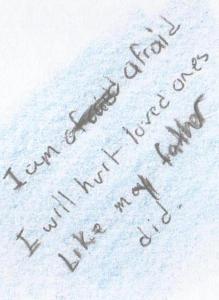 I am afraid
I will hurt loved ones
Like my father
did.